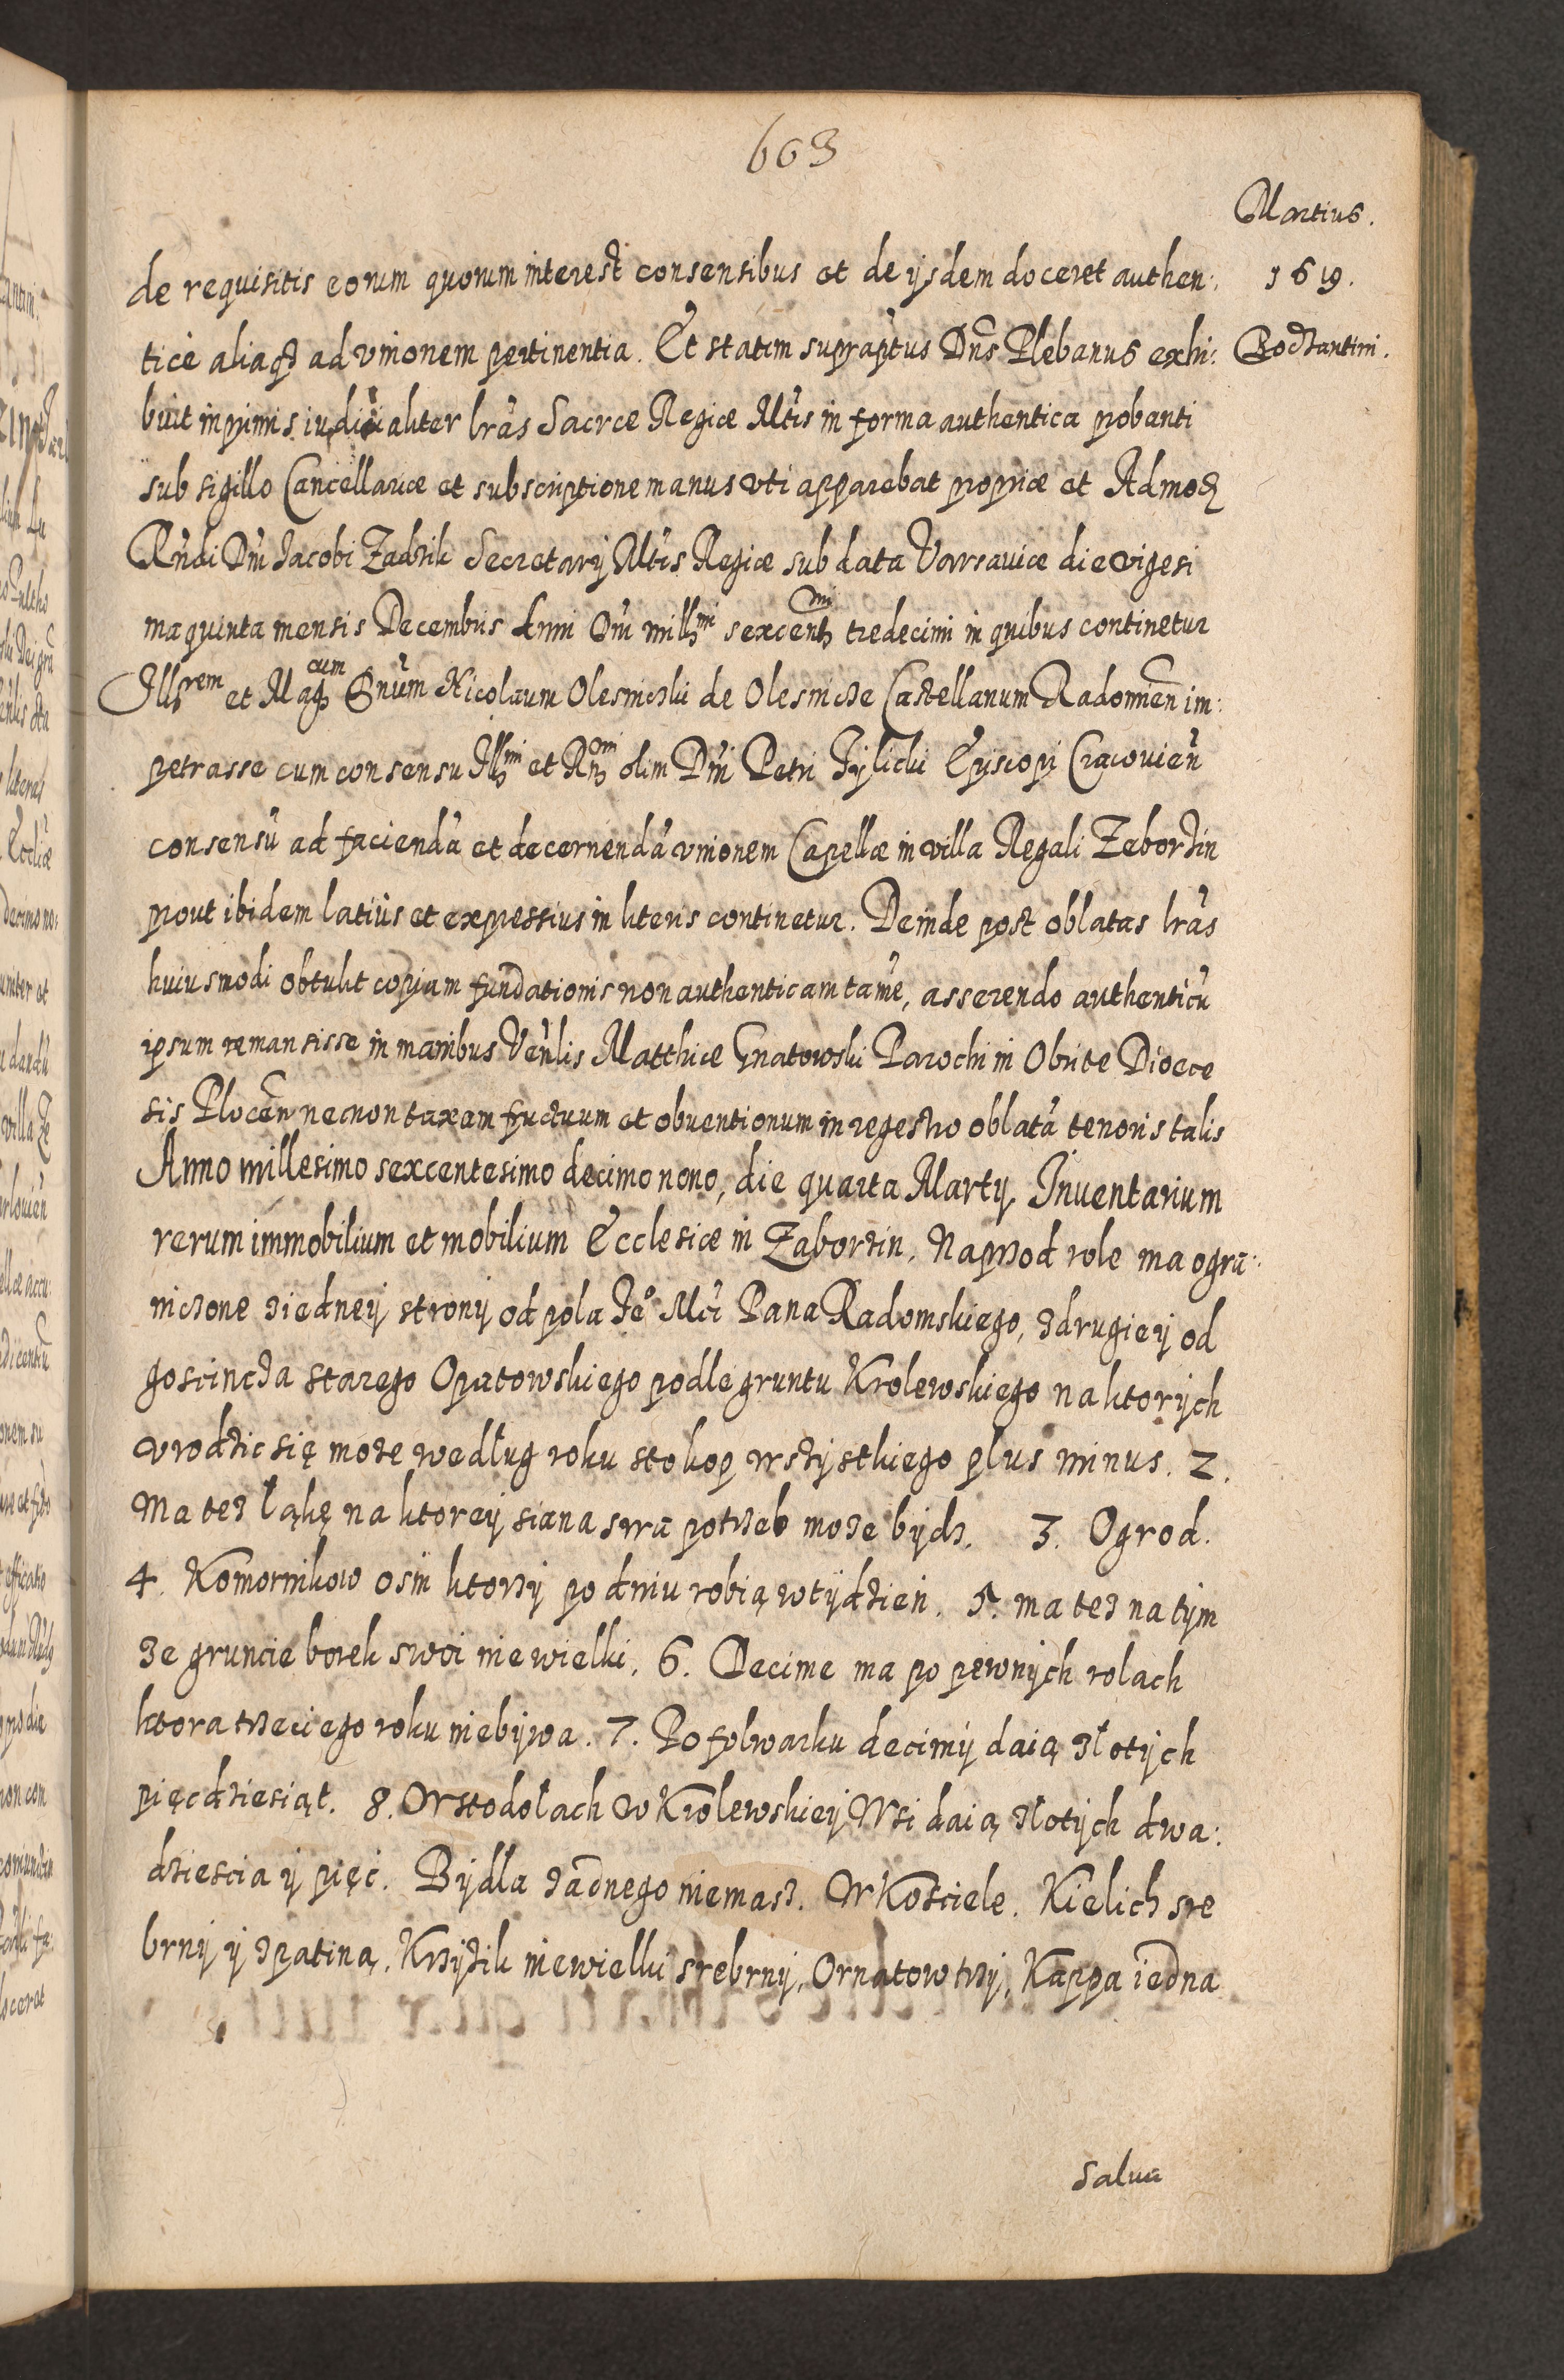 603
Martius.
1619.
Bodzantini.
de requisitis eorum quorum interest consensibus et de ijsdem doceret authen:
tice aliaqȝ ad vnionem pertinentia. Et statim suprapt̃us Dn̄s Plebanus exhi:
buit inprimis iudicialiter lr̃as Sacræ Regiæ Mt̃is in forma authentica probanti
sub sigillo Cancellariæ et subscriptione manus vti apparebat propriæ et Admodȝ
Rn̄di Dn̄i Jacobi Zadzik Secretarij Mt̃is Regiæ sub data Varsauiæ die vigesi
ma quinta mensis Decembris Anni Dn̄i millȝmi sexcentȝmi tredecimi in quibus continetur
Illȝrem et Magȝcum Dn̄um Nicolaum Olesniczki de Olesnicze Castellanum Radomien̄ im:
petrasse cum consensu Illȝmi et Rȝmi olim Dn̄i Petri Tylicki Episcopi Cracouien̄
consensū ad faciendā et decernendā vnionem Capellæ in villa Regali Zeborzin
prout ibidem latius et expressius in literis continetur. Deinde post oblatas lr̃as
huiusmodi obtulit copiam fundationis non authenticam tamē, asserendo authenticū
ipsum remansisse in manibus Ven̄lis Matthiæ Gnatowski Parochi in Obrite Dioece
sis Plocen̄ necnon taxam fructuum et obuentionum in regestro oblatā tenoris talis
Anno millesimo sexcentesimo decimo nono, die quarta Martij. Inuentarium
rerum immobilium et mobilium Ecclesiæ in Zaborzin. Naprzod role ma ogra:
niczone ziedney strony od pola Je° Mci Pana Radomskiego, zdrugiey od
goscincza starego Opatowskiego podle gruntu Krolewskiego na ktorych
vrodzic się może według roku sto kop wszystkiego plus minus. 2.
Ma też łąkę na ktorey siana swa potrzeb może bydz. 3. Ogrod.
4. Komornikow osm ktorzy po dniu robią w tydzień. 5. ma też na tym
że gruncie borek swoi niewielki. 6. Decime ma po pewnych rolach
ktora trzeciego roku niebywa. 7. Po folwarku decimy daią złotych
pięcdziesiąt. 8. W stodołach w Krolewskiey Wsi daią złotych dwa:
dziescia y pięć. Bydla żadnego niemasz. W Kościele. Kielich sre
brny y zpatina, Krzyżik niewielki srebrny, Ornatow trzy, Kappa iedna
salua